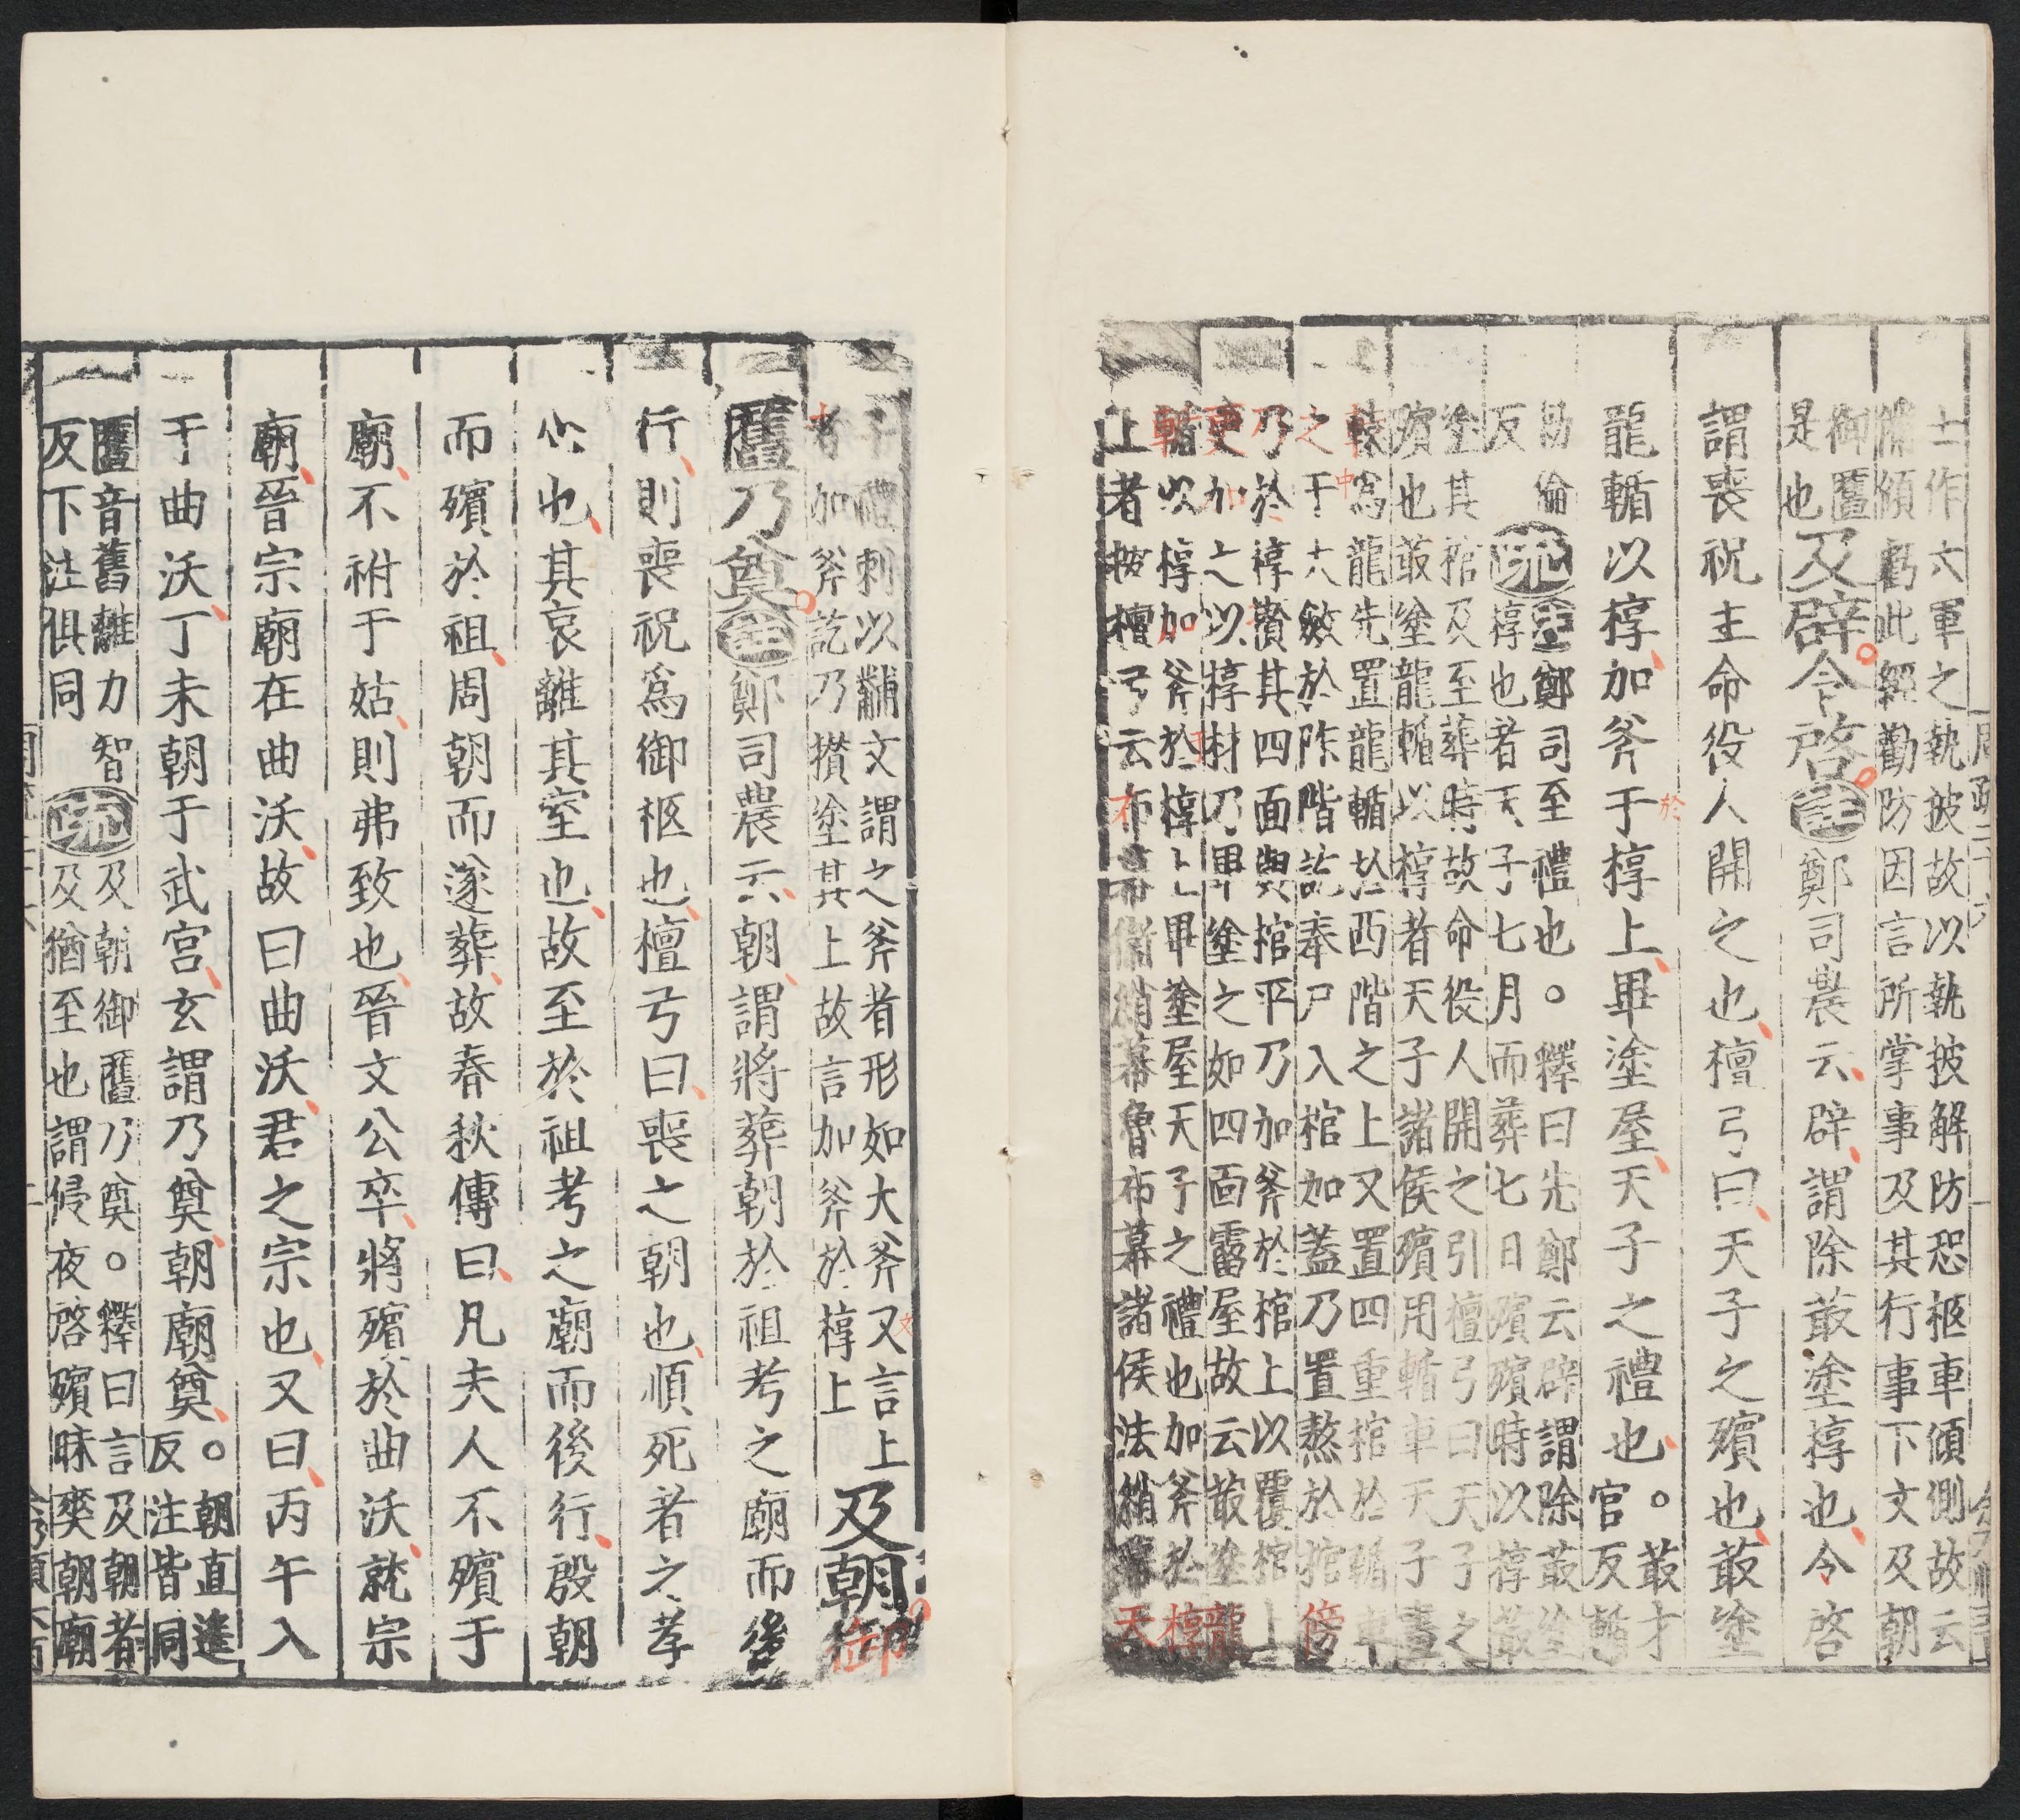 士作六軍之執披故以執披解防恐柩車傾側故云
備傾虧此經勸防因言所掌事及其行事下文及朝
御匶
是也
及辟令啓註鄭司農云辟謂除菆塗椁也令啓
謂喪祝主命役人開之也檀弓曰天子之殯也菆塗
龍輴以椁加斧于椁上畢塗屋天子之禮也。菆才
官反輴
勑倫
反
疏註鄭司至禮也。釋曰先鄭云辟謂除菆塗
椁也者天子七月而葬七日殯殯時以椁菆
塗其棺及至葬時故命役人開之引檀弓曰天子之
殯也菆塗龍輴以椁者天子諸侯殯用輴車天子畫
轅爲龍先置龍輴於西階之上又置四重棺於輴車
之中大斂於阼階訖奉尸入棺加蓋乃置熬於棺傍
乃於椁攢其四面與棺平乃加斧於棺上以覆棺上
更加之以椁材乃畢塗之如四面霤屋故云菆塗龍
輴以椁加斧於椁上畢塗屋天子之禮也加斧於椁
上者按檀弓云布幕衛綃幕魯布幕諸侯法綃幕天
子禮刺以黼文謂之斧者形如大斧文言上
加斧訖乃攢塗其上故言加斧於椁上
及朝御
匶乃奠註鄭司農云朝謂將葬朝於祖考之廟而後
行則喪祝爲御柩也檀弓曰喪之朝也順死者之孝
心也其哀離其室也故至於祖考之廟而後行殷朝
而殯於祖周朝而遂葬故春秋傳曰凡夫人不殯于
廟不祔于姑則弗致也晉文公卒將殯於曲沃就宗
廟晉宗廟在曲沃故曰曲沃君之宗也又曰丙午入
于曲沃丁未朝于武宮玄謂乃奠朝廟奠。朝直遙
反注皆同
匶音舊離力智
反下注俱同
疏及朝御匶乃奠。釋曰言及朝者
及猶至也謂侵夜啓殯昧爽朝廟